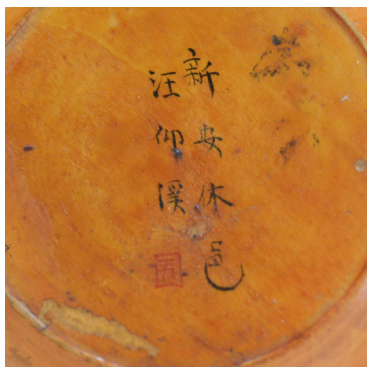 新安休邑
汪仰溪